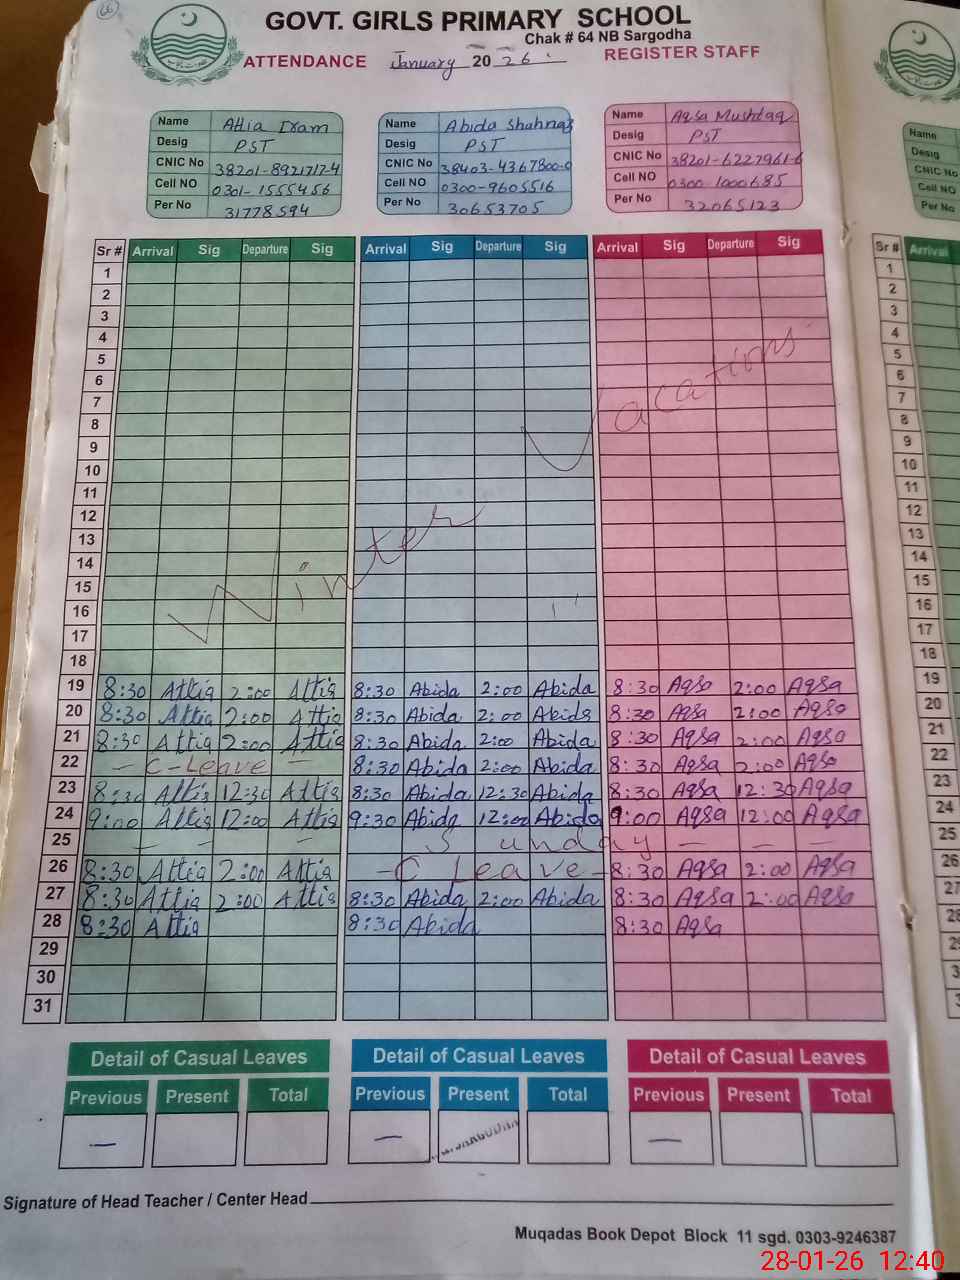 66
GOVT. GIRLS PRIMARY SCHOOL
Chak # 64 NB Sargodha
ATTENDANCE January 2026 REGISTER STAFF
Name Attia Iram Name Abida Shahnaz Name Aqsa Mushtaq Name
Desig PST Desig PST Desig PST Desig
CNIC No 38201-8921717-4 CNIC No 38403-4367800-0 CNIC No 38201-6227961-6 CNIC No
Cell NO 0301-1555456 Cell NO 0300-9605516 Cell NO 0300-1000685 Cell NO
Per No 31778594 Per No 30653705 Per No 32065123 Per No
Sr # Arrival Sig Departure Sig Arrival Sig Departure Sig Arrival Sig Departure Sig Sr # Arrival
1 1
2 2
3 3
4 4
5 5
6 6
7 7
8 8
9 9
10 10
11 11
12 12
13 13
14 14
15 15
16 16
17 17
18 18
Winter Vacations
19 8:30 Attia 2:00 Attia 8:30 Abida 2:00 Abida 8:30 Aqsa 2:00 Aqsa 19
20 8:30 Attia 2:00 Attia 8:30 Abida 2:00 Abida 8:30 Aqsa 2:00 Aqsa 20
21 8:30 Attia 2:00 Attia 8:30 Abida 2:00 Abida 8:30 Aqsa 2:00 Aqsa 21
22 - C-Leave - 8:30 Abida 2:00 Abida 8:30 Aqsa 2:00 Aqsa 22
23 8:30 Attia 12:30 Attia 8:30 Abida 12:30 Abida 8:30 Aqsa 12:30 Aqsa 23
24 9:00 Attia 12:00 Attia 9:30 Abida 12:00 Abida 9:00 Aqsa 12:00 Aqsa 24
25 - - - - Sunday - - - 25
26 8:30 Attia 2:00 Attia - C Leave - 8:30 Aqsa 2:00 Aqsa 26
27 8:30 Attia 2:00 Attia 8:30 Abida 2:00 Abida 8:30 Aqsa 2:00 Aqsa 27
28 8:30 Attia 8:30 Abida 8:30 Aqsa 28
29
30
31
Detail of Casual Leaves Detail of Casual Leaves Detail of Casual Leaves
Previous Present Total Previous Present Total Previous Present Total
— — —
Signature of Head Teacher / Center Head
Muqadas Book Depot Block 11 sgd. 0303-9246387
28-01-26 12:40